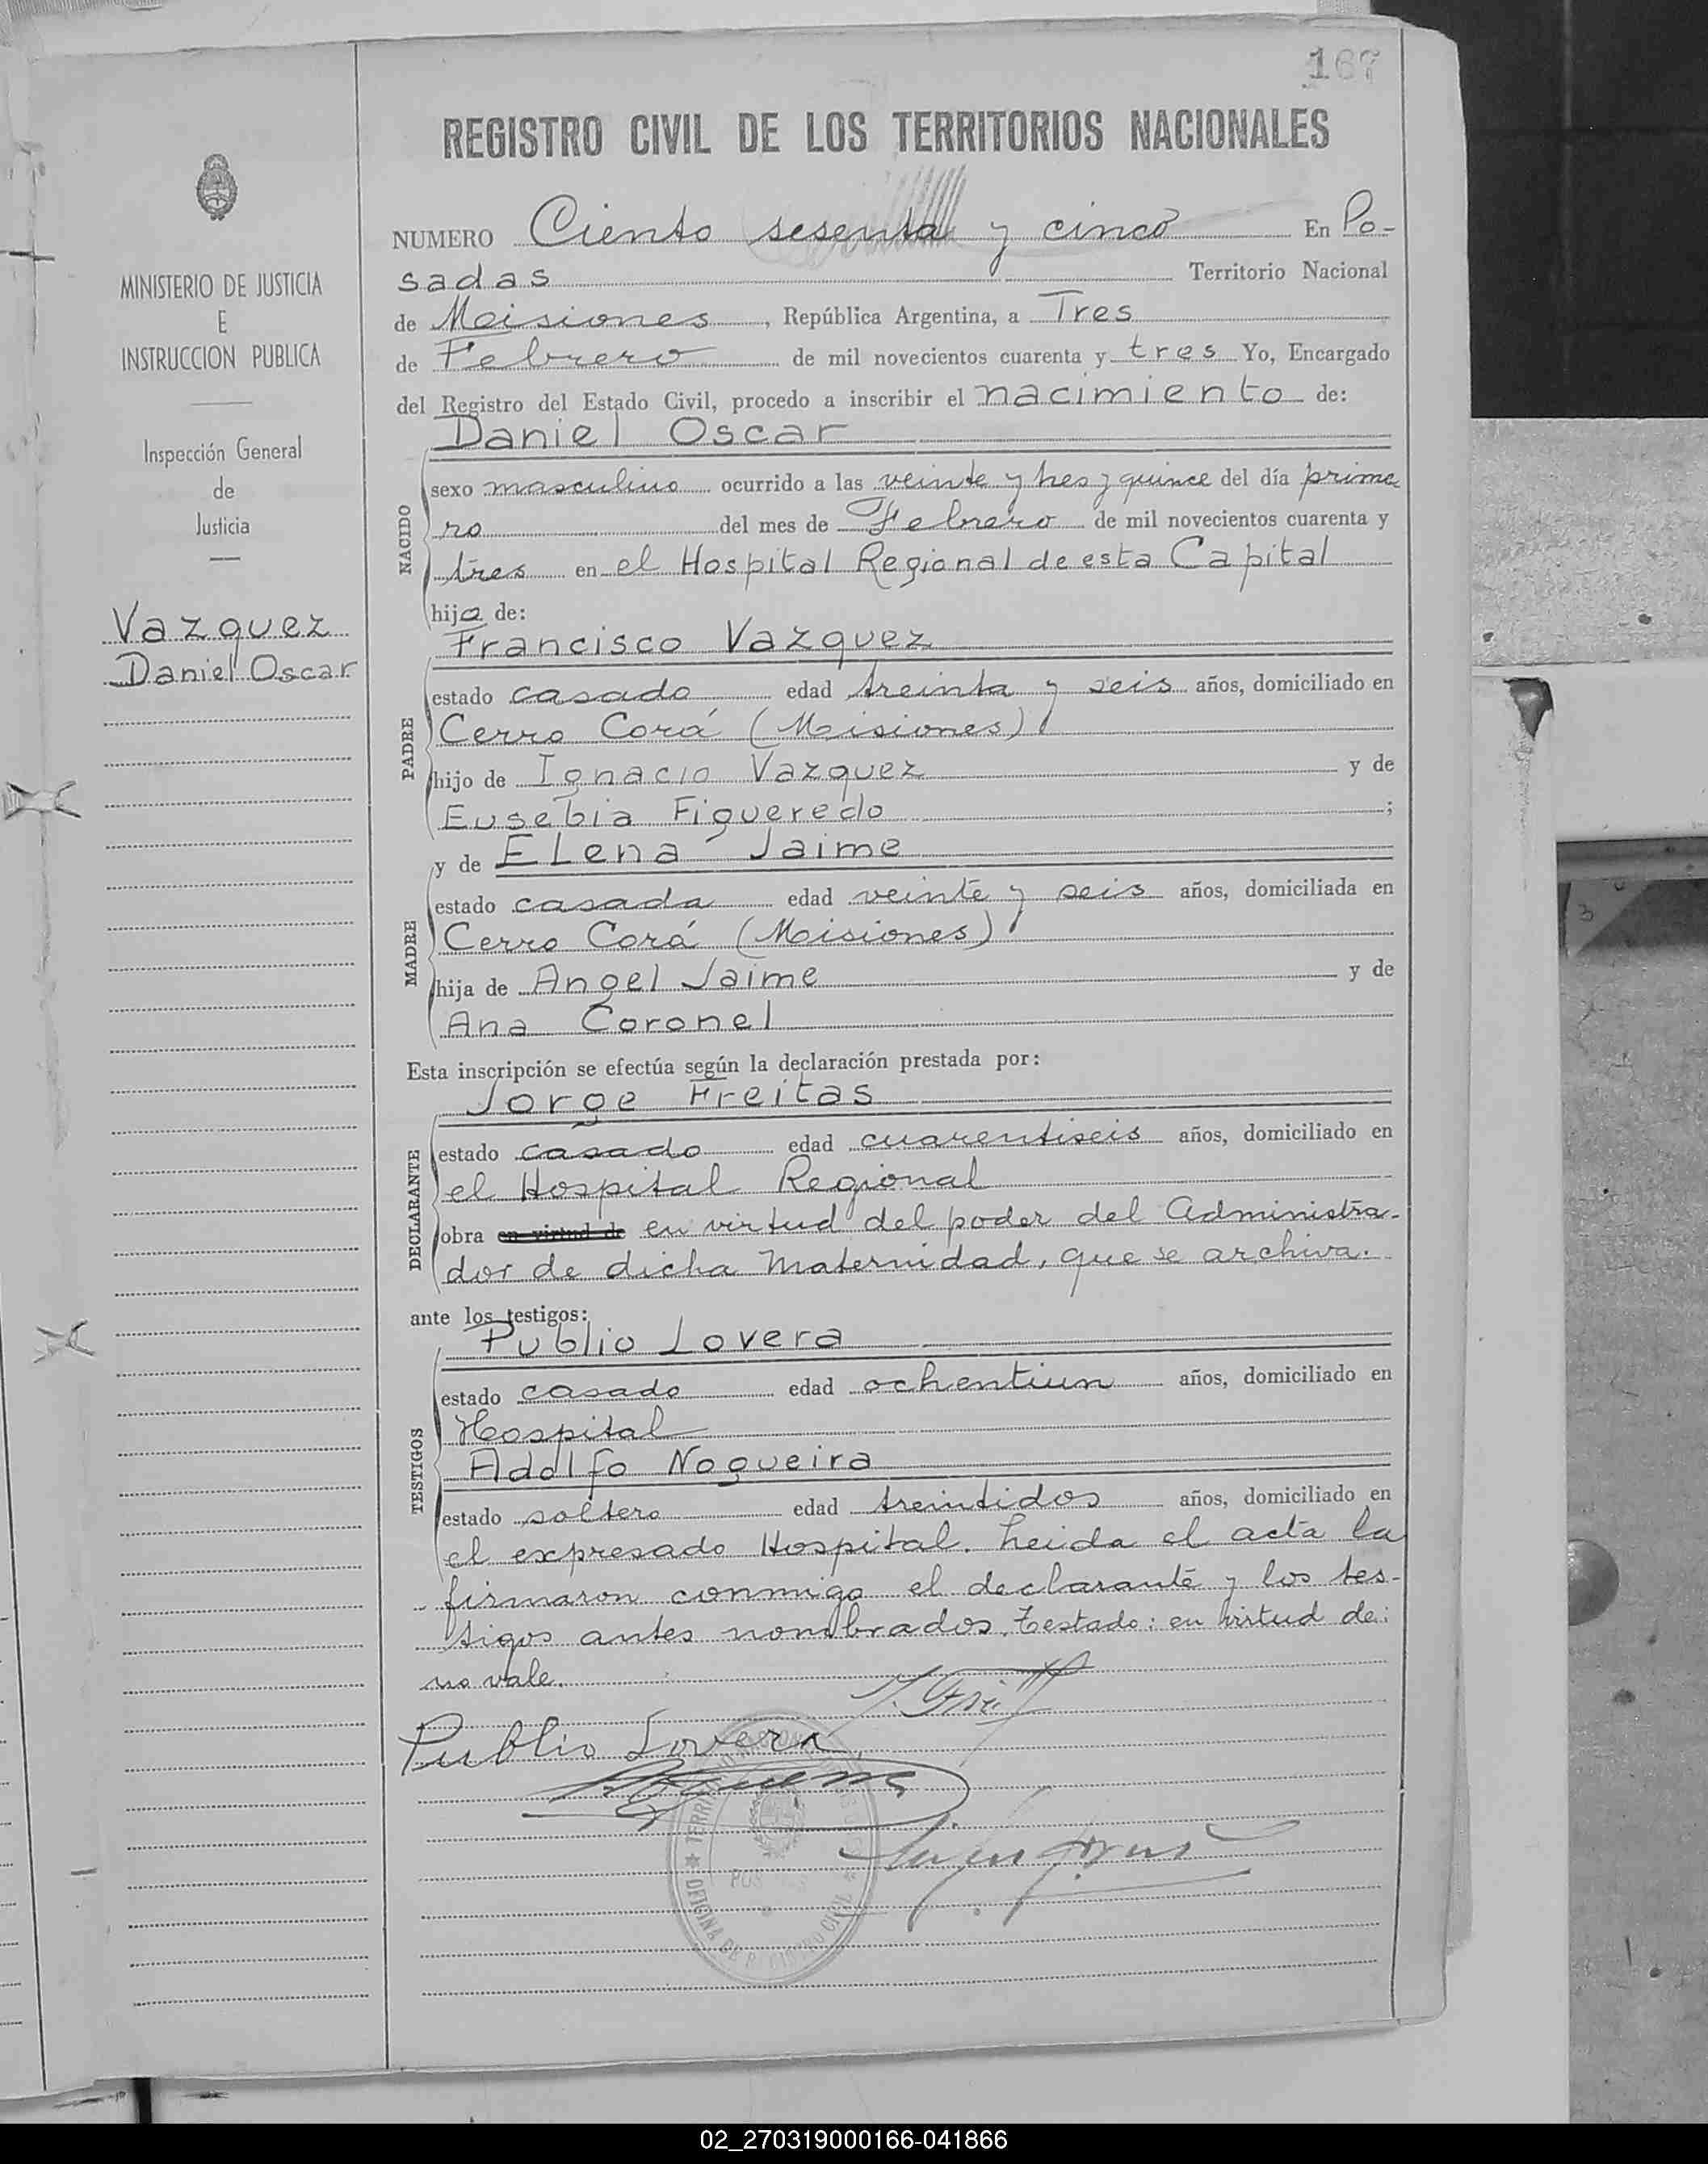 167
REGISTRO CIVIL DE LOS TERRITORIOS NACIONALES
MINISTERIO DE JUSTICIA
E
INSTRUCCION PUBLICA
Inspección General
de
Justicia
Vazquez
Daniel Oscar
NUMERO Ciento sesenta y cinco En Po-
sadas Territorio Nacional
de Misiones, República Argentina, a Tres
de Febrero de mil novecientos cuarenta y tres Yo, Encargado
del Registro del Estado Civil, procedo a inscribir el nacimiento de:
Daniel Oscar
NACIDO
sexo masculino ocurrido a las veinte y tres y quince del día prime
ro del mes de Febrero de mil novecientos cuarenta y
tres en el Hospital Regional de esta Capital
hijo de:
Francisco Vazquez
PADRE
estado casado edad treinta y seis años, domiciliado en
Cerro Corá (Misiones)
hijo de Ignacio Vazquez y de
Eusebia Figueredo ;
y de Elena Jaime
MADRE
estado casada edad veinte y seis años, domiciliada en
Cerro Corá (Misiones)
hija de Angel Jaime y de
Ana Coronel
Esta inscripción se efectúa según la declaración prestada por:
Jorge Freitas
DECLARANTE
estado casado edad cuarentiseis años, domiciliado en
el Hospital Regional
obra en virtud de en virtud del poder del Administra-
dor de dicha Maternidad, que se archiva.
ante los testigos:
Publio Lovera
TESTIGOS
estado casado edad ochentiun años, domiciliado en
Hospital
Adolfo Nogueira
estado soltero edad treintidos años, domiciliado en
el expresado Hospital. Leida el acta la
firmaron conmigo el declarante y los tes-
tigos antes nombrados. Testado: en virtud de:
no vale.
Publio Lovera
02_270319000166-041866